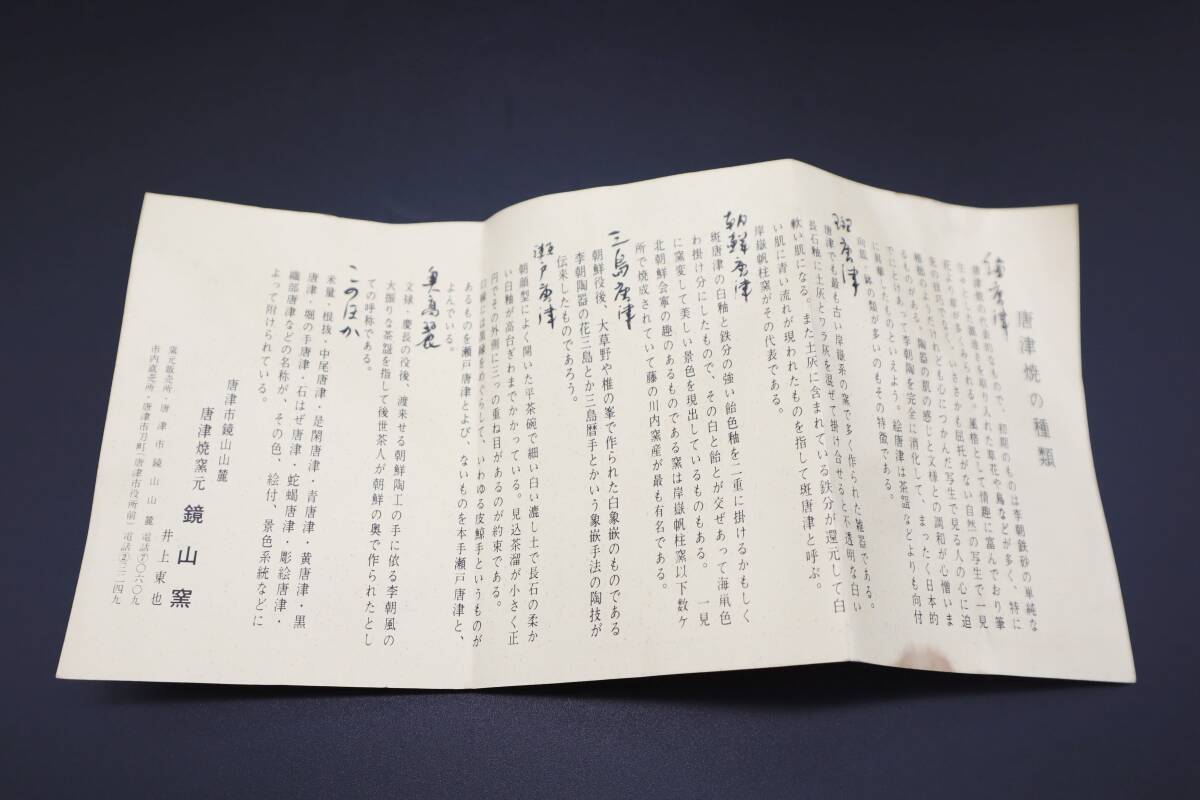 唐津焼の種類
絵唐津
唐津焼の代表的なもので、初期のものは李朝鉄砂の単純な
を取り入れた草花や鳥などが多く、特に
として情趣に富んでおり筆
自然の写生で一見
つかんだ写生で見る人の心に迫
陶器の肌の感じと文様との調和が心憎いま
でにとけあって李朝陶を完全に消化して、まったく日本的
に昇華したものといえよう。絵唐津は茶盌などよりも向付
向皿、鉢の類が多いのもその特徴である。
斑唐津
唐津でも最も古い岸嶽系の窯で多く作られた雑器である。
長石釉に土灰とワラ灰を混ぜて掛け合せると不透明な白い
軟い肌になる。また土灰に含まれている鉄分が還元して白
い肌に青い流れが現われたものを指して斑唐津と呼ぶ。
岸嶽帆柱窯がその代表である。
朝鮮唐津
斑唐津の白釉と鉄分の強い飴色釉を二重に掛けるかもしく
わ掛け分にしたもので、その白と飴とが交ぜあって海鼡色
に窯変して美しい景色を現出しているものもある。一見
北朝鮮会寧の趣のあるものである窯は岸嶽帆柱窯以下数ケ
所で焼成されていて藤の川内窯産が最も有名である。
三島唐津
朝鮮役後、大草野や椎の峯で作られた白象嵌のものである
李朝陶器の花三島とか三島暦手とかいう象嵌手法の陶技が
伝来したものであろう。
瀬戸唐津
朝顔型によく開いた平茶碗で細い白い漉し土で長石の柔か
い白釉が高台ぎわまでかかっている。見込茶溜が小さく正
円やその外側に三つの重ね目があるのが約束である。
口縁には黒線をめぐらして、いわゆる皮鯨手というものが
あるものを瀬戸唐津とよび、ないものを本手瀬戸唐津と、
よんでいる。
奥高麗
文禄・慶長の役後、渡来せる朝鮮陶工の手に依る李朝風の
大振りな茶盌を指して後世茶人が朝鮮の奥で作られたとし
ての呼称である。
このほか
米量・根抜・中尾唐津・是閑唐津・青唐津・黄唐津・黒
唐津・堀の手唐津・石はぜ唐津・蛇蝎唐津・彫絵唐津・
織部唐津などの名称が、その色、絵付、景色系統などに
よって附けられている。
唐津市鏡山山麓
唐津焼窯元 鏡山窯
井上東也
窯元販売所・唐津市鏡山山麓 電話⑦〇六〇九
市内直売所・唐津市刀町(唐津市役所前) 電話②三二四九